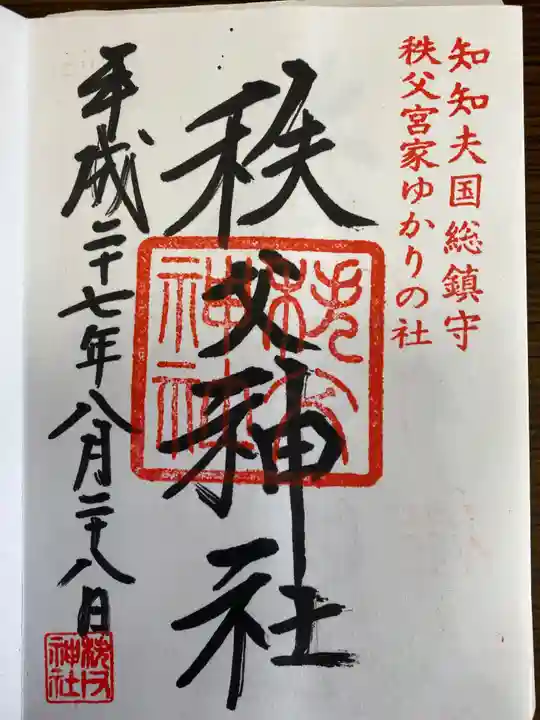 知知夫国総鎮守
秩父宮家ゆかりの社
秩父神社
秩父神社
平成二十七年八月二十八日
秩父神社